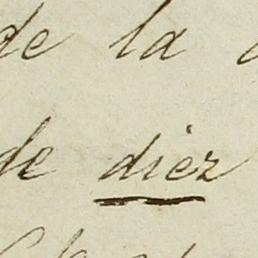 de la
de diez